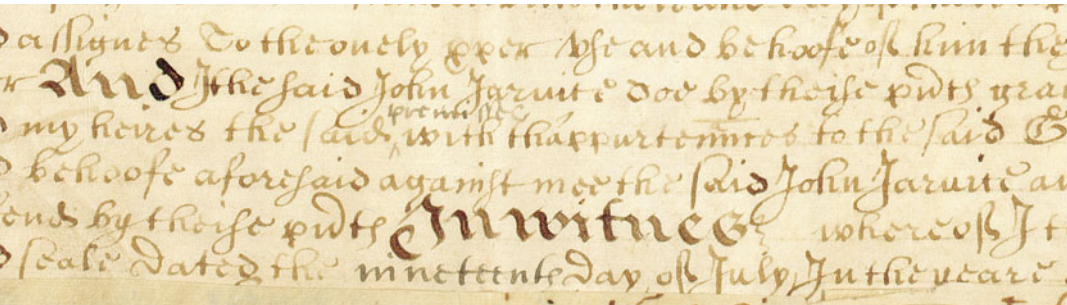 assignes To the onely pper vse and behoofe of him the
r And I the said John Jarvice doe by theise pñtes gra
premisses
my heires the said with thappurtennces to the said G
behoofe aforesaid against mee the said John Jarvice a
fend by theise pñtes In witnes whereof I t
seale Dated the nineteenth day of July In the yeare